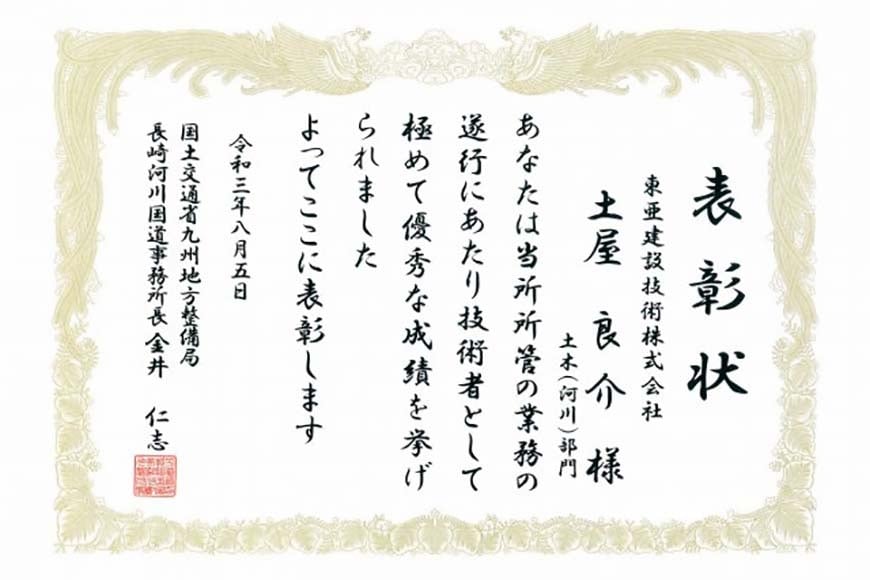 表彰状
東亜建設技術株式会社
土屋 良介 様
土木(河川)部門
あなたは当所所管の業務の
遂行にあたり技術者として
極めて優秀な成績を挙げ
られました
よってここに表彰します
令和三年八月五日
国土交通省九州地方整備局
長崎河川国道事務所長 金井 仁志